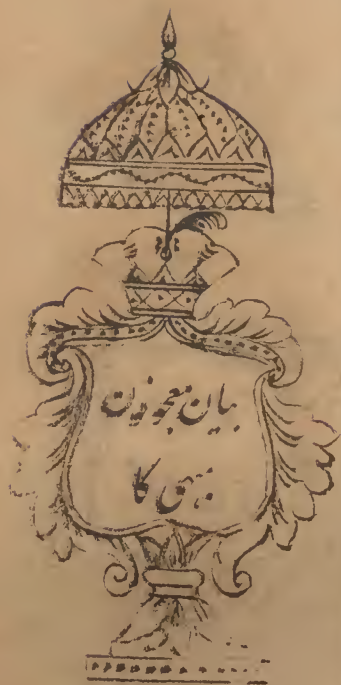 بیان معجونات
کا